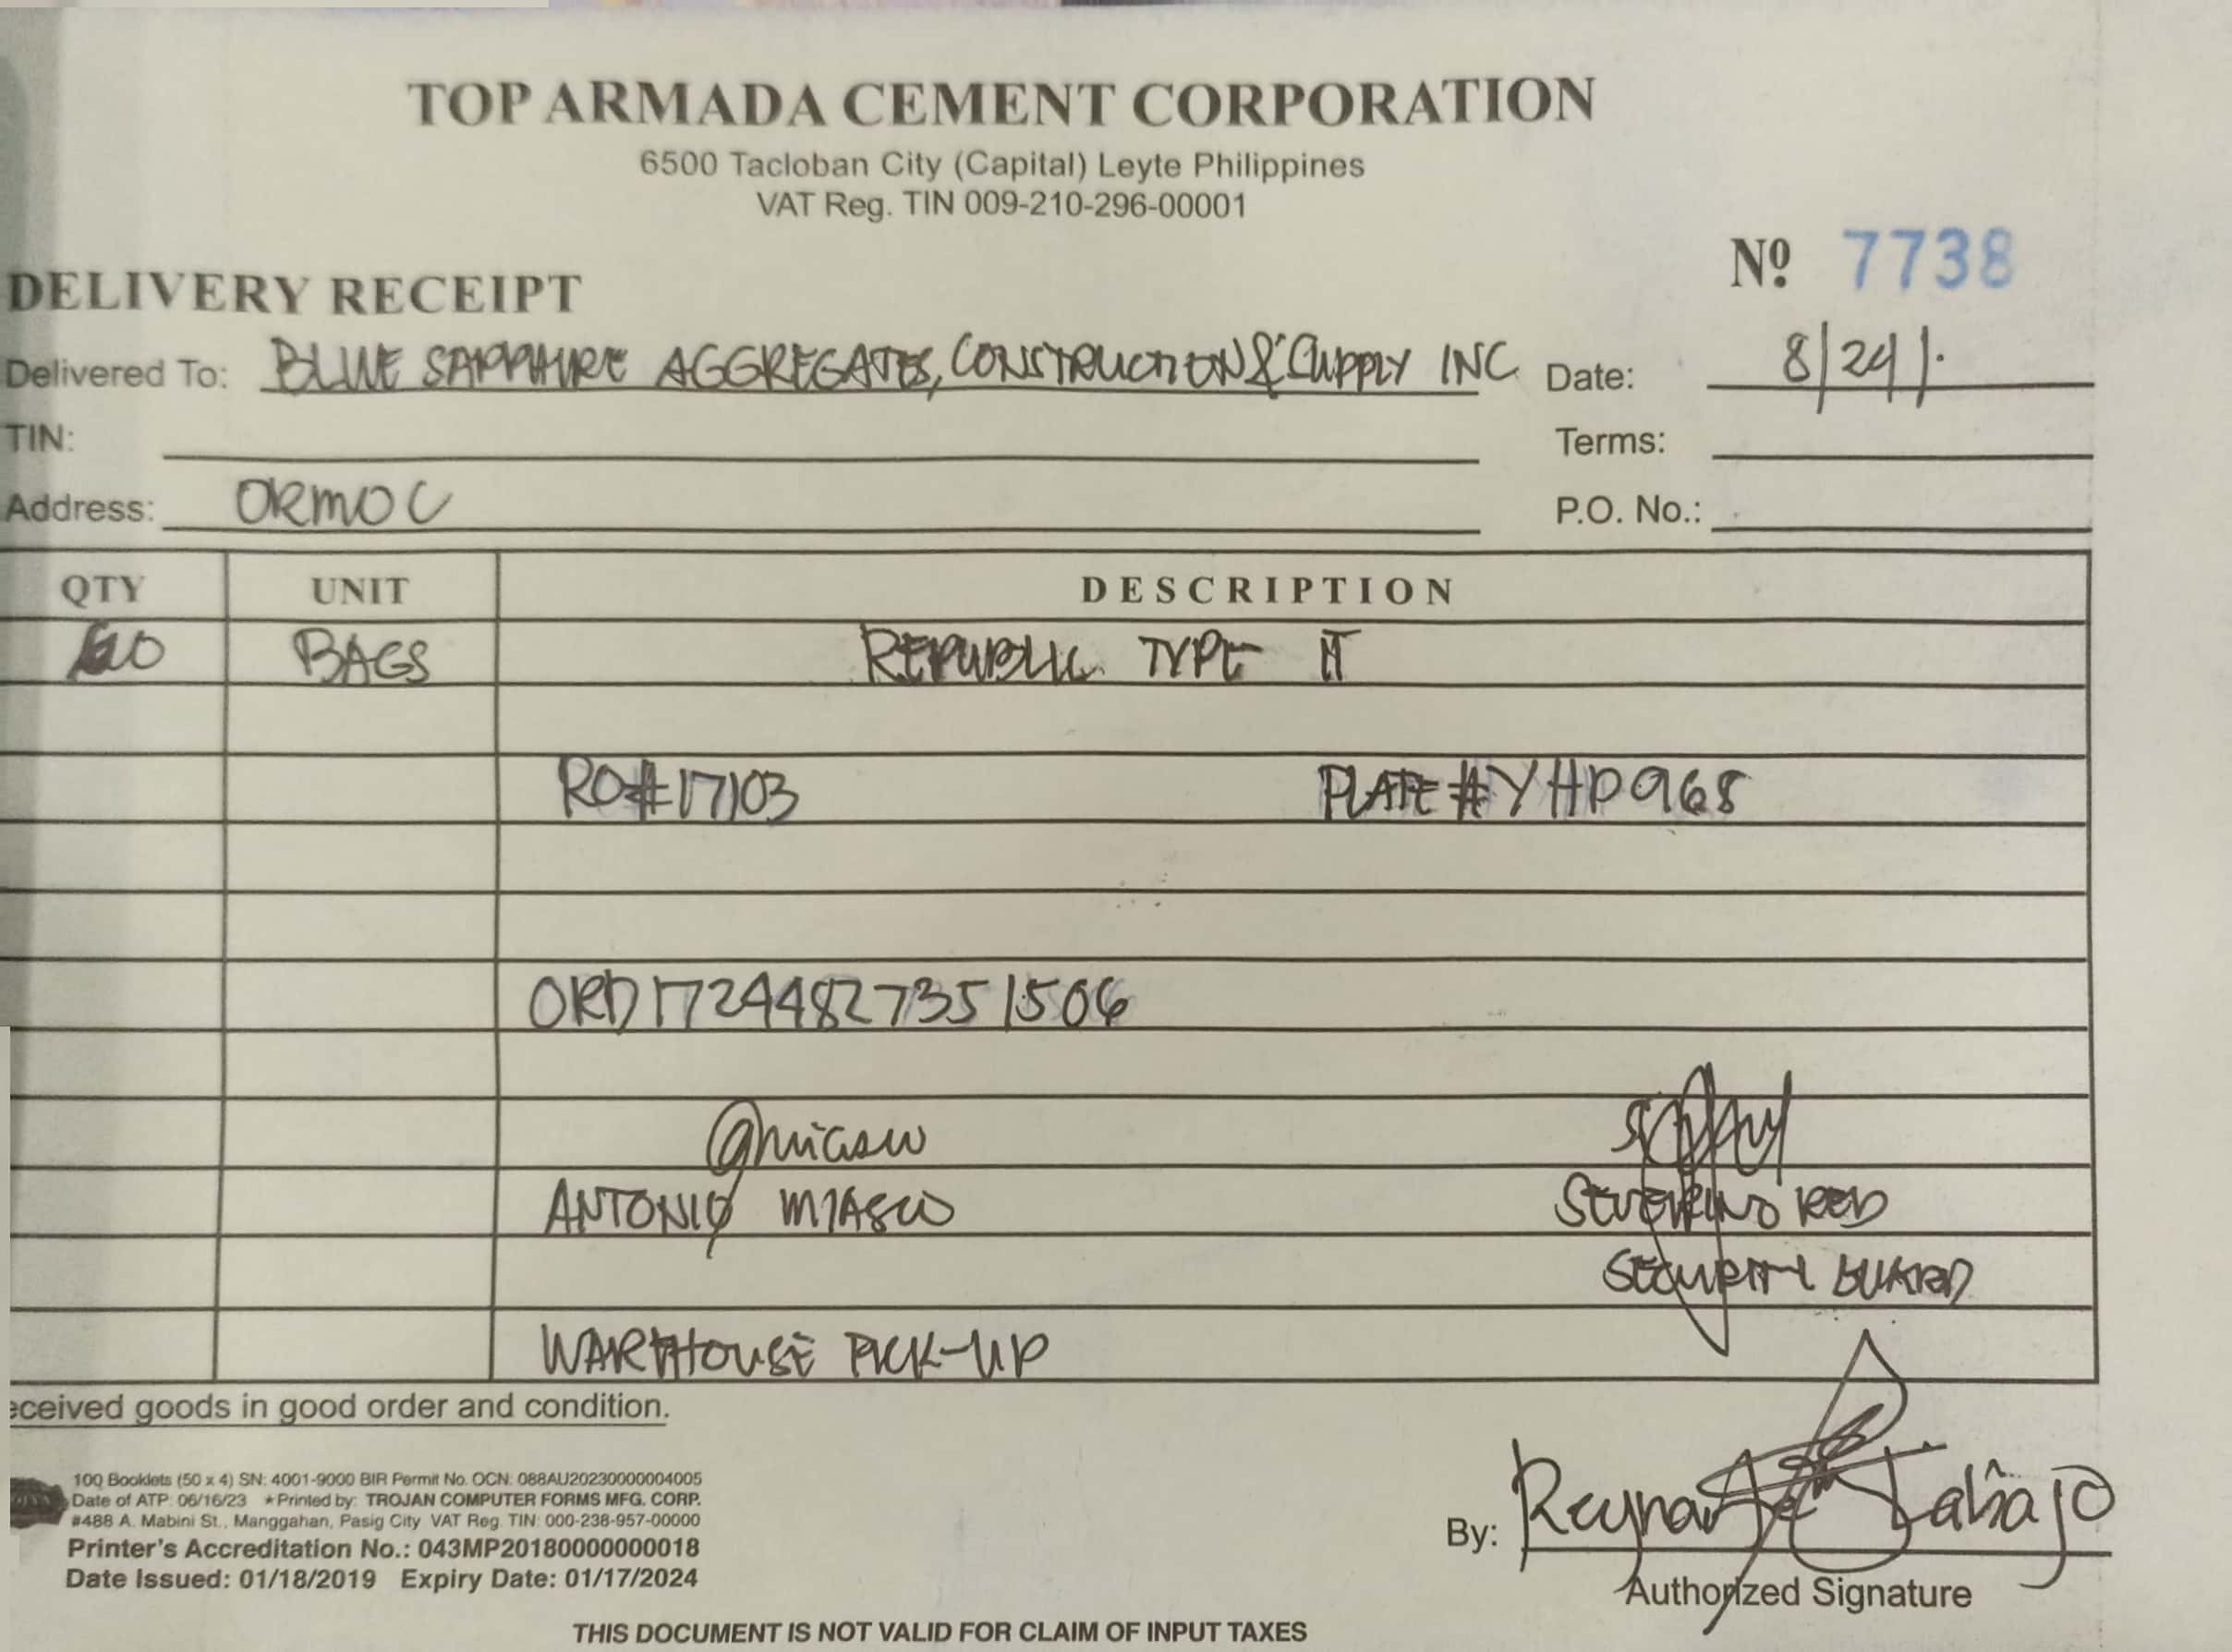 TOP ARMADA CEMENT CORPORATION
6500 Tacloban City (Capital) Leyte Philippines
VAT Reg. TIN 009-210-296-00001
Nº 7738
DELIVERY RECEIPT
Delivered To: BLUE SAPPHIRE AGGREGATES, CONSTRUCTION & SUPPLY INC Date: 8/24/.
TIN: Terms:
Address: ORMOC P.O. No.:
QTY UNIT DESCRIPTION
BAGS REPUBLIC TYPE
RO#17103 PLATE #YHD968
ORD17244827351506
ANTONIO
SEVERINO RED
SECURITY GUARD
WAREHOUSE PICK-UP
eceived goods in good order and condition.
100 Booklets (50 x 4) SN: 4001-9000 BIR Permit No. OCN: 088AU20230000004005
Date of ATP: 06/16/23 ★Printed by: TROJAN COMPUTER FORMS MFG. CORP.
#488 A. Mabini St., Manggahan, Pasig City VAT Reg. TIN: 000-238-957-00000
Printer's Accreditation No.: 043MP20180000000018
Date Issued: 01/18/2019 Expiry Date: 01/17/2024
By:
Authorized Signature
THIS DOCUMENT IS NOT VALID FOR CLAIM OF INPUT TAXES